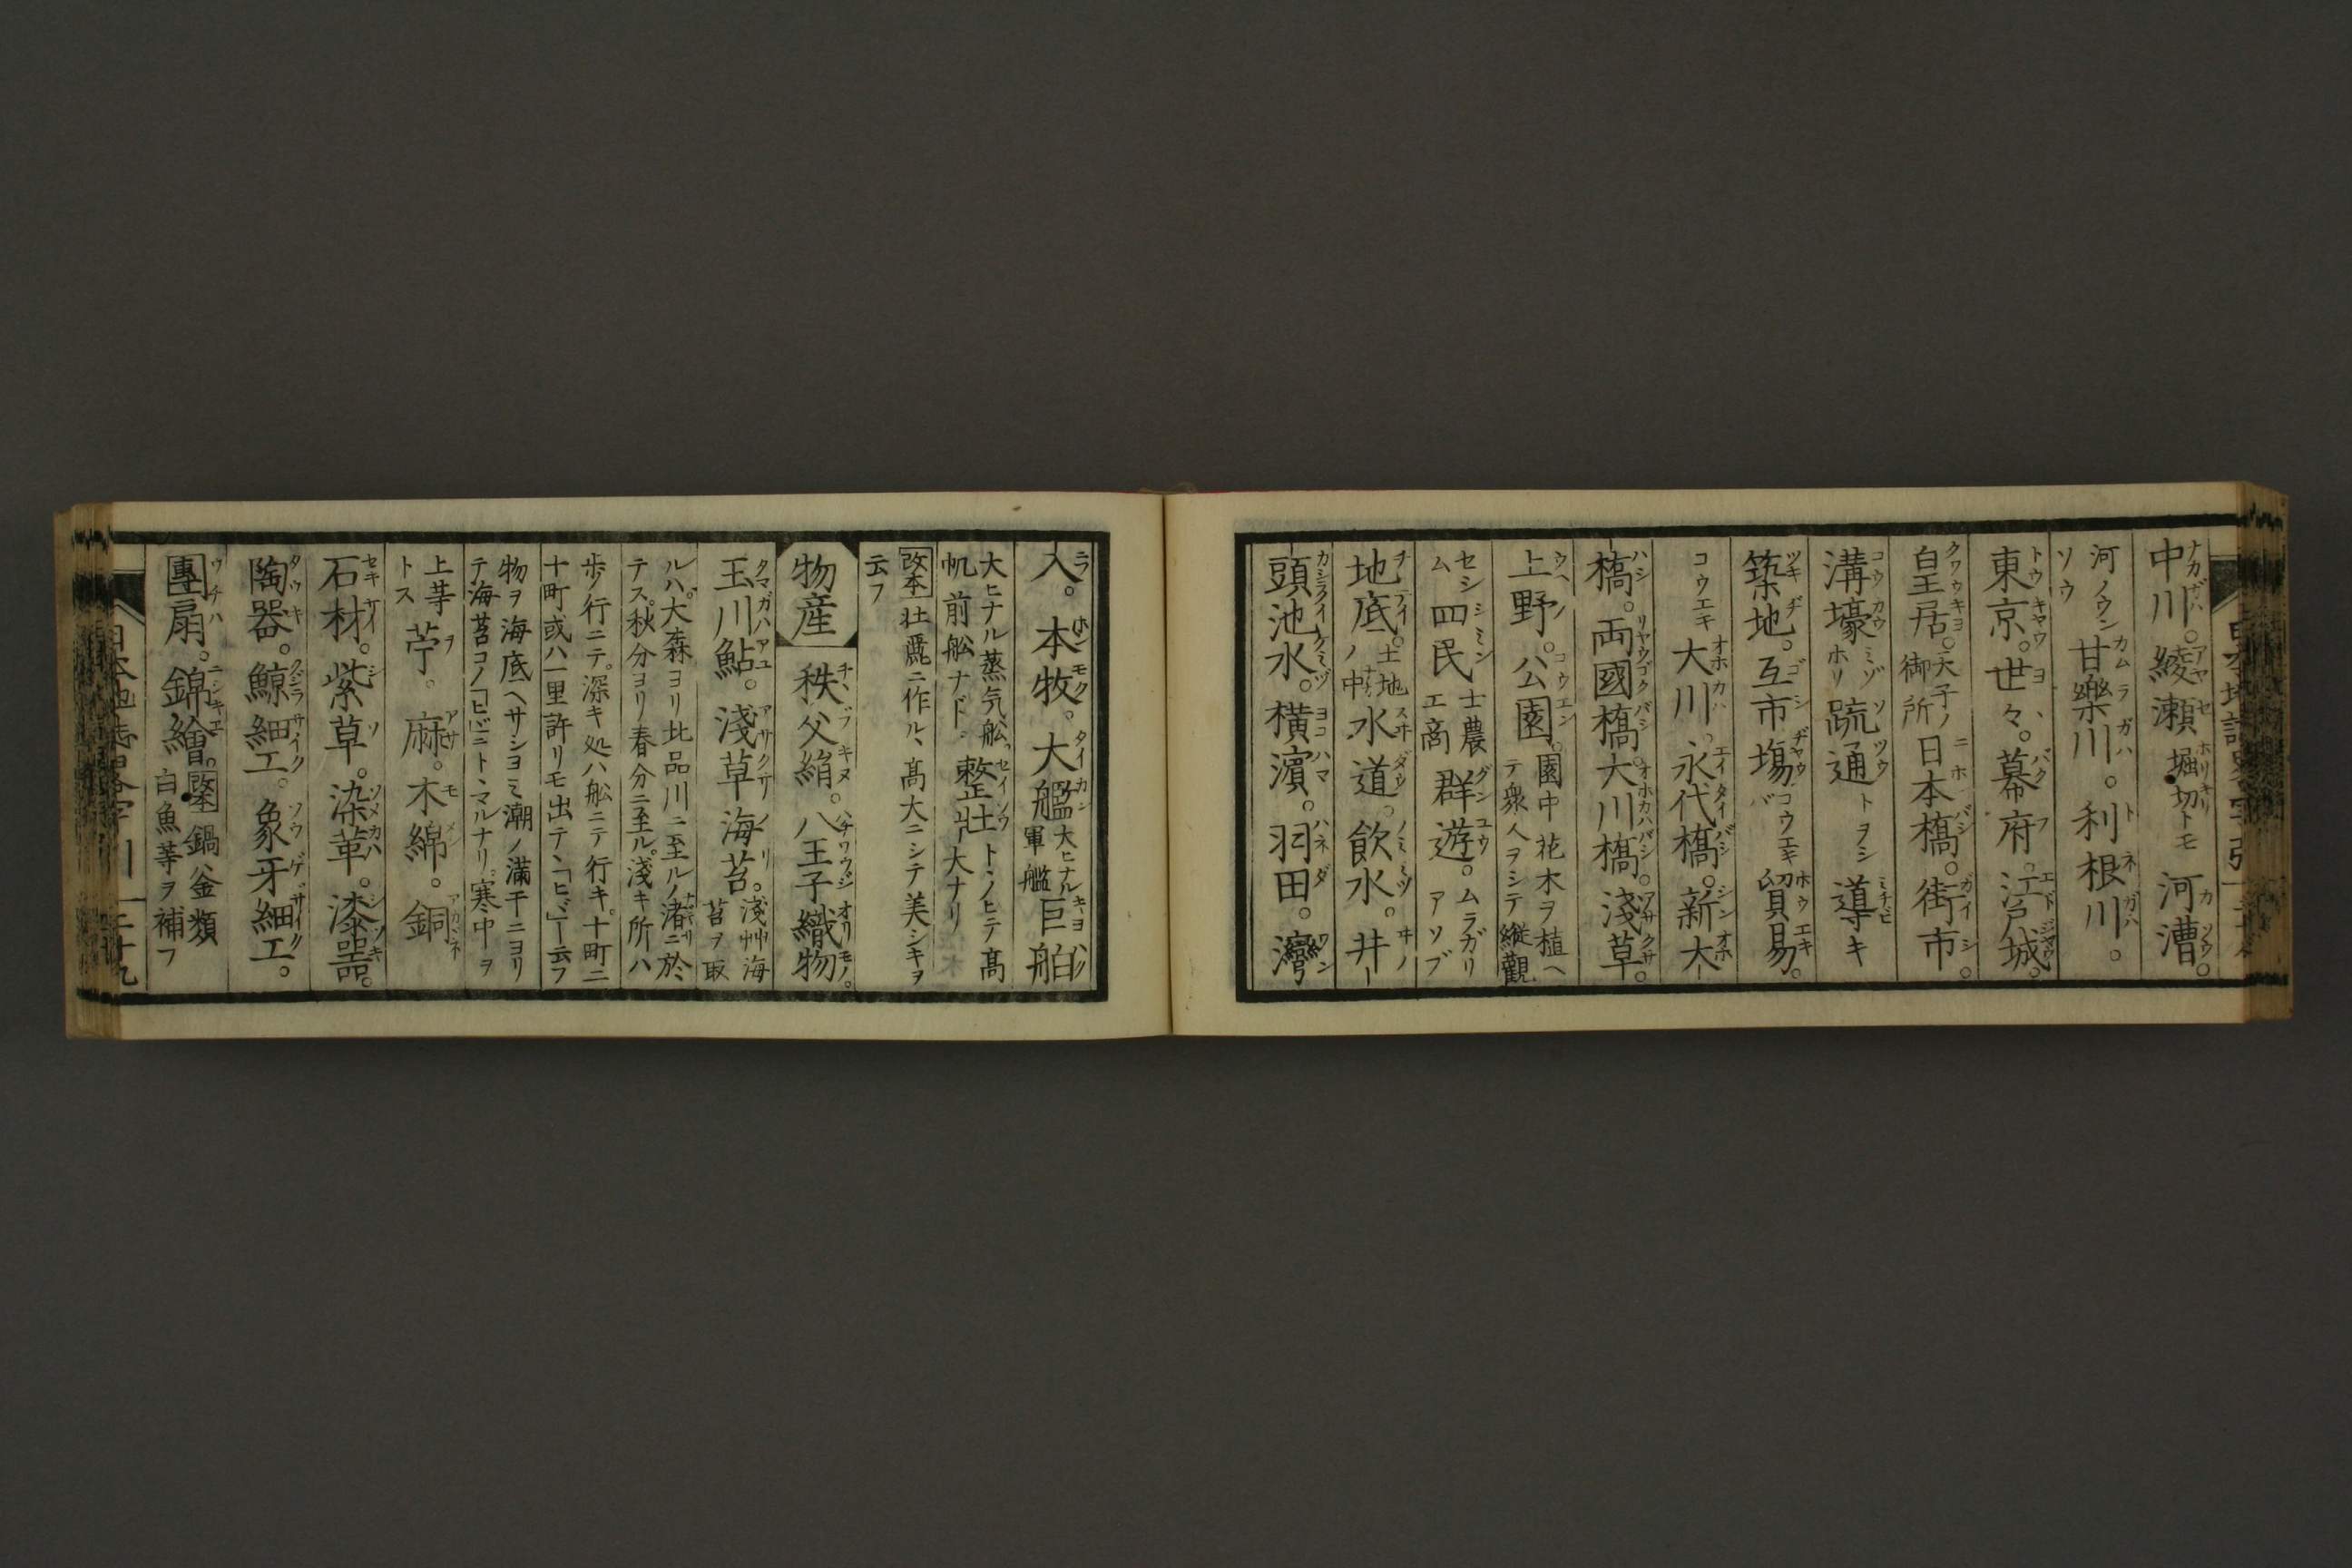 中川。綾瀬 堀切トモ 河漕。
河ノウンソウ 甘樂川。利根川。
東京。世々。幕府。江戸城。
皇居。天子ノ御所 日本橋。街市。
溝壕 ミゾホリ 疏通 トヲシ 導キ
築地。互市場 コウエキバ 貿易。
コウエキ 大川。永代橋。新大
橋。両國橋。大川橋。淺草。
上野。公園。園中花木ヲ植ヘテ衆人ヲシテ縱觀
セシム 四民 士農工商 群遊。ムラガリアソブ
地底。土地ノ中 水道。飲水。井ノ
頭池水。横濵。羽田。灣
入。本牧。大艦 大ヒナル軍艦 巨舶
大ヒナル蒸気舩帆前舩ナド 整壮 トヽノヒテ髙大ナリ
改本 壮麗ニ作ル、髙大ニシテ美シキヲ云フ
物産 秩父絹。八王子織物。
玉川鮎。淺草海苔。淺艸海苔ヲ取
ルハ大森ヨリ比品川ニ至ルノ渚ニ於テス。秋分ヨリ春分ニ至ル。淺キ所ハ
歩ノ行ニテ。深キ処ハ舩ニテ行キ。十町二十町或ハ一里許リモ出テヽ「ヒビ」ト云フ
物ヲ海底ヘサシヨミ潮ノ滿干ニヨリテ海苔コノ「ヒビ」ニトヽマルナリ。寒中ヲ
上等トス 苧。麻。木綿。銅
石材。紫草。染革。漆器。
陶器。鯨細工。象牙細工。
團扇。錦繪。改本 鍋釜類白魚等ヲ補フ